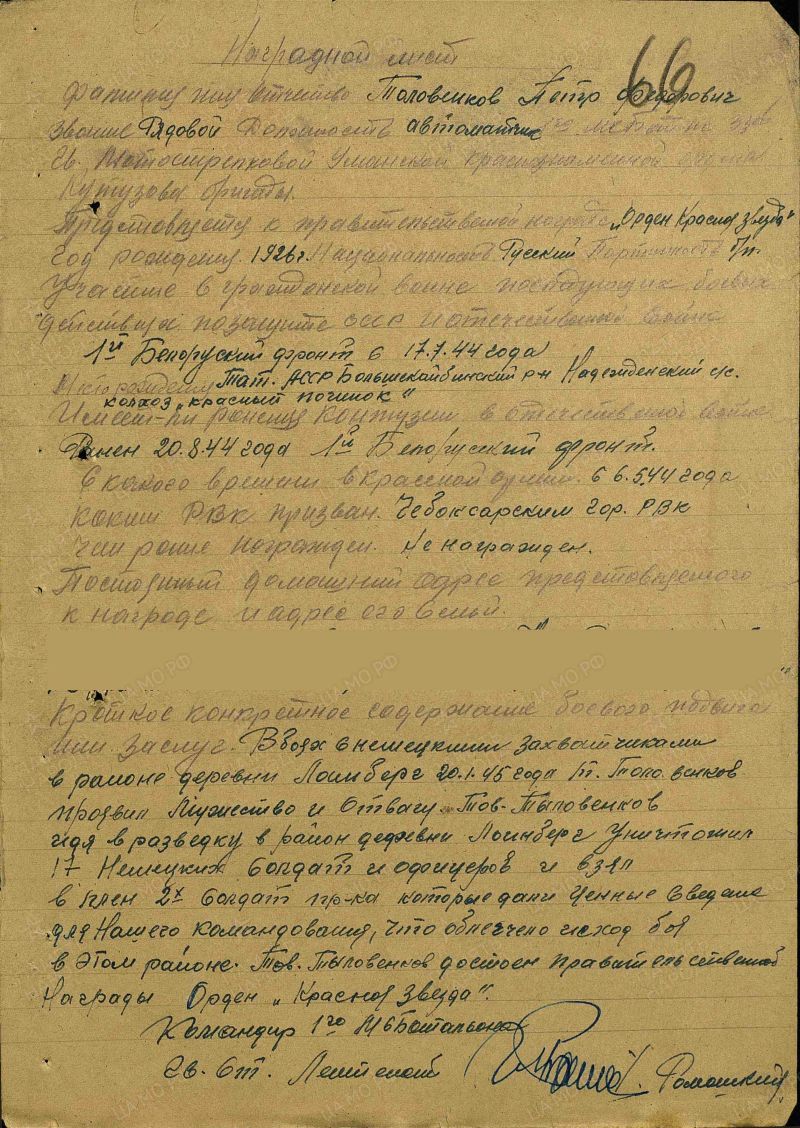 66
Наградной лист
Фамилия имя отчество Толовенков Петр Федорович
Звание Рядовой Должность автоматчик 1го мсбат-на
Гв. Мотострелковой Уманской Краснознаменной ордена
Кутузова бригады.
Представляется к правительственной награде „Орден Красная Звезда"
Год рождения 1926 г. Национальность Русский Партийность б/п.
Участие в гражданской войне последующих боевых
действиях по защите СССР и отечественной войне
1й Белоруский фронт с 17.7.44 года
Место рождения Тат. АССР Большекайбицкий р-н Надежденский с/с.
колхоз „Красный починок"
Имеет-ли ранения контузии в отечественной войне
Ранен 20.8.44 года 1й Белорусский фронт.
С какого времени в красной армии. с 6.5.44 года
Каким РВК призван. Чебоксарским гор. РВК
Чем ранее награжден. Не награжден.
Постоянный домашний адрес представляемого
к награде и адрес его семьи.
Краткое конкретное содержание боевого подвига
или заслуг. В боях с немецкими захватчиками
в районе деревни Лоинберг 20.1.45 года т. Толовенков
проявил Мужество и Отвагу. Тов. Тыловенков
идя в разведку в район деревни Лоинберг уничтожил
17 Немецких солдат и офицеров и взял
в плен 2х солдат пр-ка которые дали ценные сведение
для Нашего командования, что облегчело исход боя
в этом районе. Тов. Тыловенков достоен правительственной
Награды Орден „Красная Звезда".
Командир 1го МсБатальона
Гв. Ст. Лейтенант Ромашкин